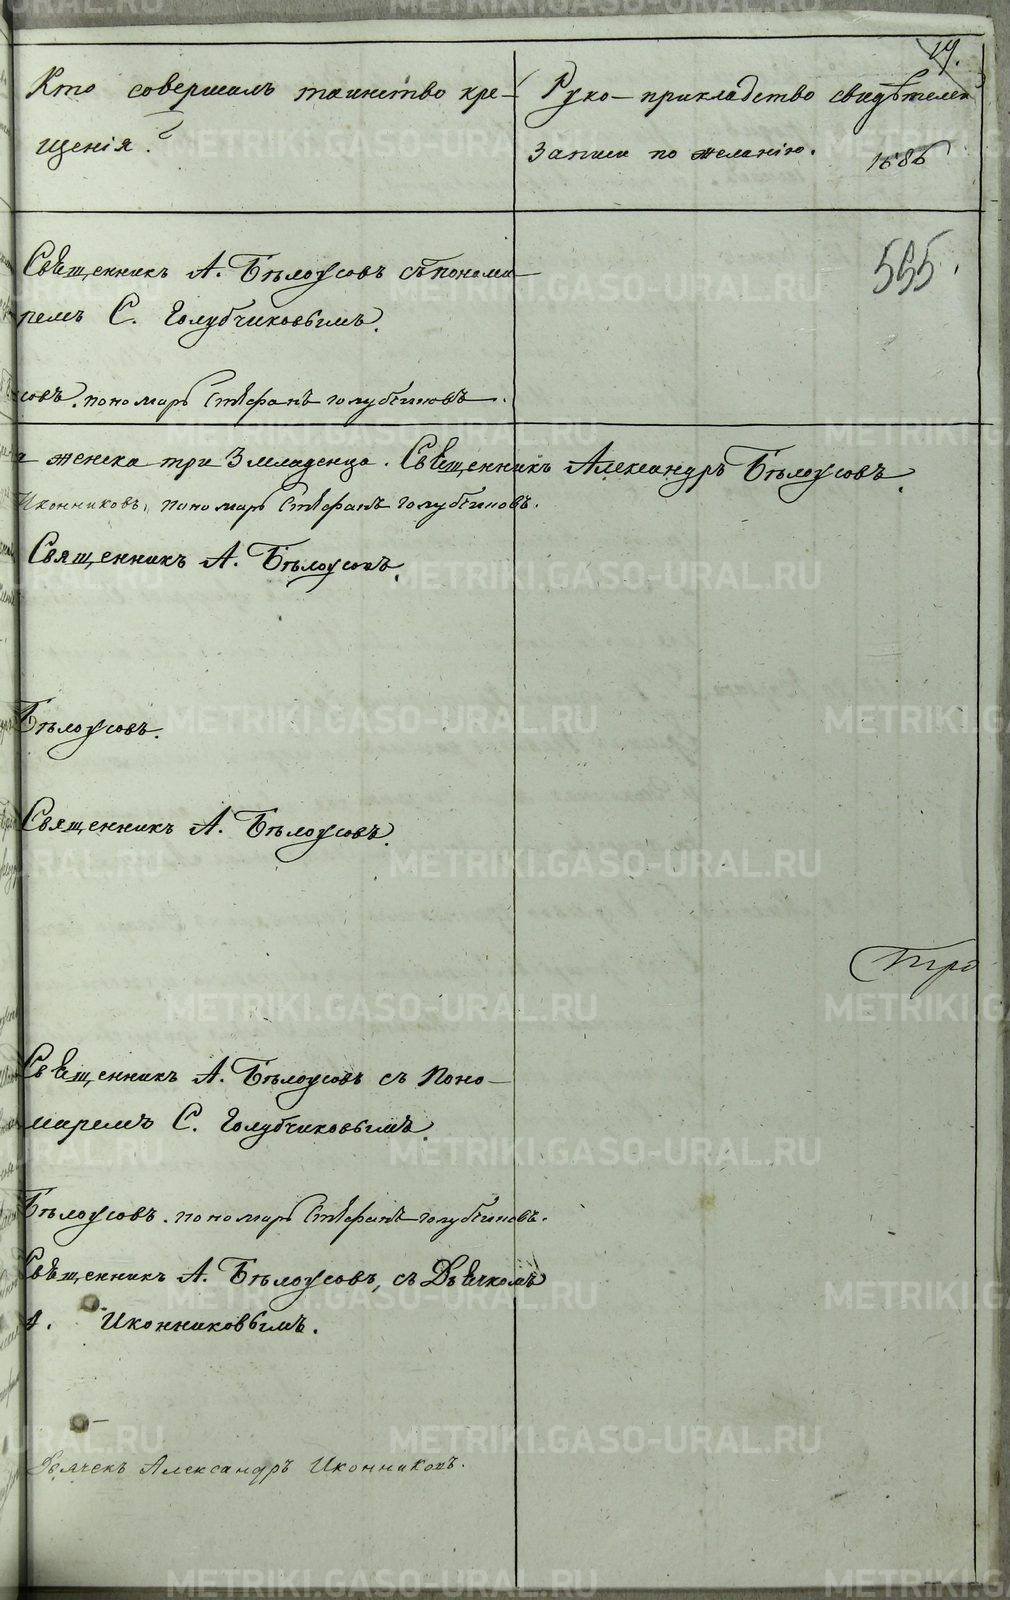 19.
Кто совершалъ таинство кре-
щенія?
Руко-прикладство свидѣтелей
Записи по желанію.
1686
595.
Священникъ А. Бѣлоусовъ съ понома-
ремъ С. Голубчиковымъ.
совъ. пономарь Стефанъ Голубчиковъ.
женска три 3 младенца. Священникъ Александръ Бѣлоусовъ.
Иконниковъ, пономарь Стефанъ Голубчиковъ.
Священникъ А. Бѣлоусовъ.
Бѣлоусовъ.
Священникъ А. Бѣлоусовъ.
Тро
Священникъ А. Бѣлоусовъ съ Поно-
маремъ С. Голубчиковымъ.
Бѣлоусовъ. пономарь Стефанъ Голубчиковъ.
Священникъ А. Бѣлоусовъ, съ Дьячкомъ
А. Иконниковымъ.
Дьячекъ Александръ Иконниковъ.
METRIKI.GASO-URAL.RU